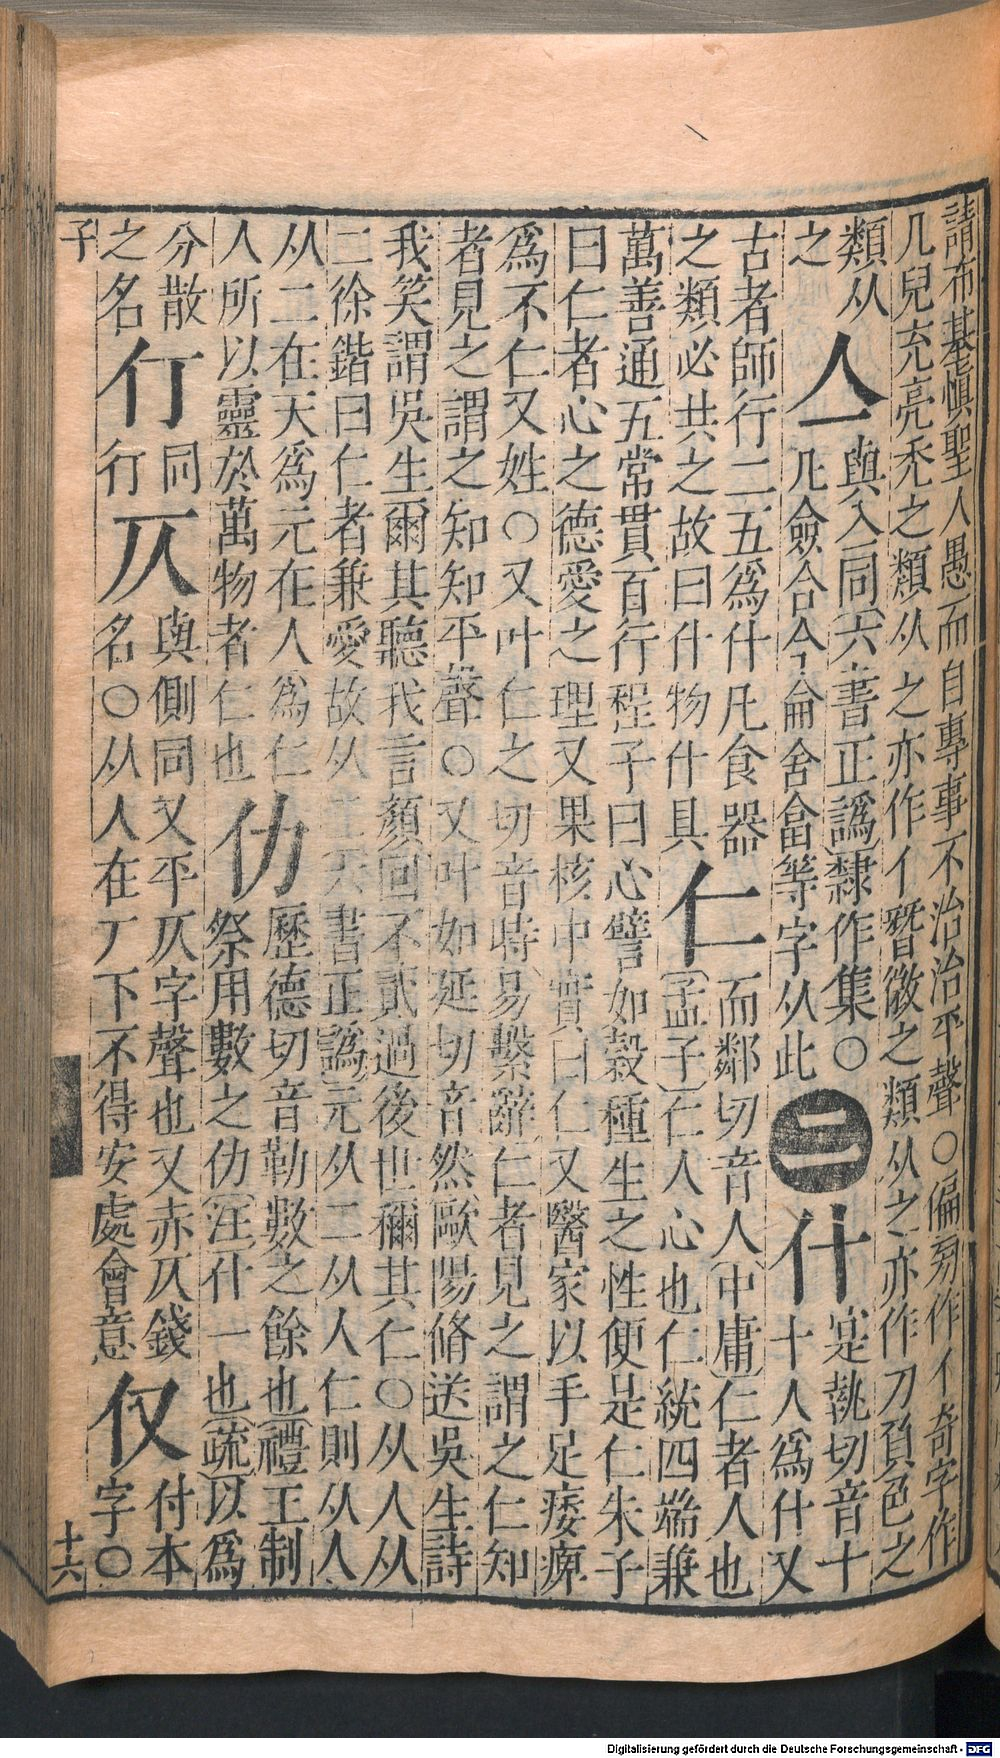 請布基愼聖人愚而自專事不治治平聲○偏旁作亻奇字作
几兒充亮禿之類从之亦作亻晉微之類从之亦作刀負色之
類从
之
亼
與入同〔六書正譌〕隸作集○
凡僉合今侖舍畣等字从此
二
什
寔執切音十
十人爲什又
古者師行二五爲什凡食器
之類必共之故曰什物什具
仁
而鄰切音人〔中庸〕仁者人也
〔孟子〕仁人心也仁統四端兼
萬善通五常貫百行程子曰心譬如榖種生之性便是仁朱子
曰仁者心之德愛之理又果核中實曰仁又醫家以手足痿痹
爲不仁又姓○又叶仁之切音時〔易繫辭〕仁者見之謂之仁知
者見之謂之知知平聲○又叶如延切音然〔歐陽脩送吳生詩
我笑謂吳生爾其聽我言顏回不貳過後世稱其仁○从人从
二徐鍇曰仁者兼愛故从二〔六書正譌〕元从二从人仁則从人
从二在天爲元在人爲仁
人所以靈於萬物者仁也
仂
歷德切音勒數之餘也〔禮王制
祭用數之仂〔注〕什一也〔疏〕以爲
分散
之名
㣔
同
行
仄
與側同又平仄字聲也又赤仄錢
名○从人在厂下不得安處會意
仅
付本
字○
子
十六
Digitalisierung gefördert durch die Deutsche Forschungsgemeinschaft - DFG